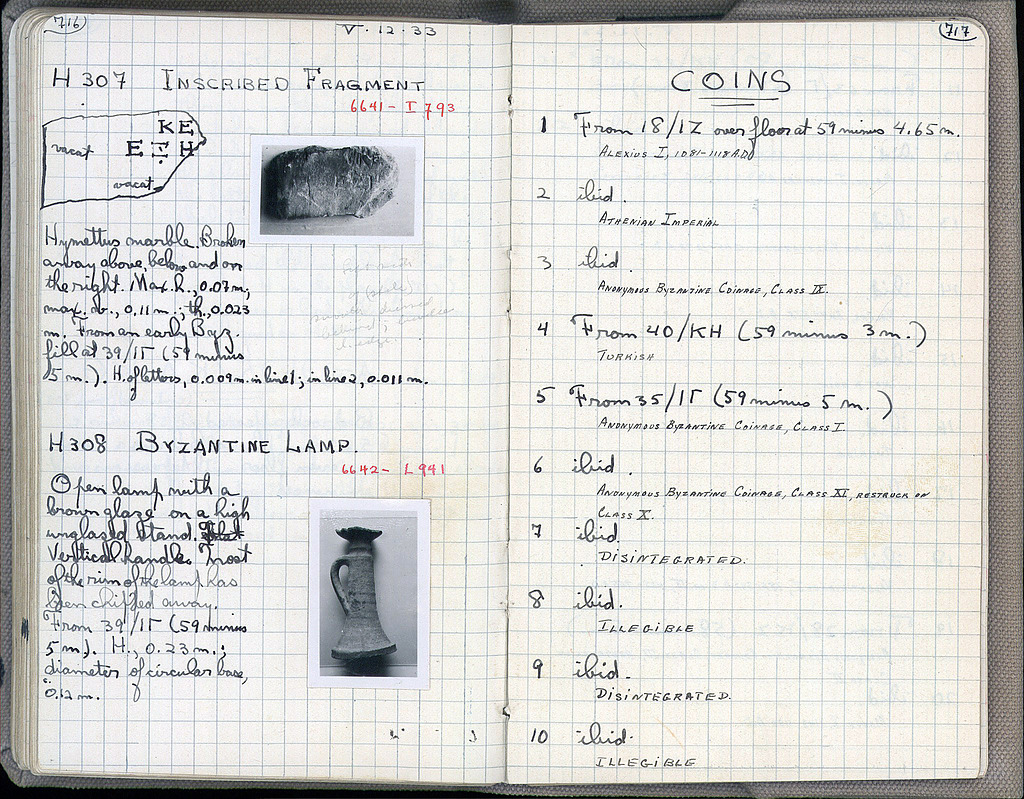 716
V · 12 · 33
H 307 INSCRIBED FRAGMENT
6641 - I 793
KE
vacat E Ξ H
vacat
Hymettus marble. Broken
away above, below and on
the right. Max. h., 0.07 m.;
max. w., 0.11 m.; th., 0.023
m. From an early Byz.
fill at 39/ΙΓ (59 minus
5 m.). H. of letters, 0.009 m. in line 1; in line 2, 0.011 m.
H 308 BYZANTINE LAMP.
6642 - L 941
Open lamp with a
brown glaze on a high
unglazed stand.
Vertical handle. Most
of the rim of the lamp has
been chipped away.
From 39/ΙΓ (59 minus
5 m.). H., 0.23 m.;
diameter of circular base,
0.12 m.
717
COINS
1 From 18/ΙΖ over floor at 59 minus 4.65 m.
ALEXIUS I, 1081-1118 A.D.
2 ibid.
ATHENIAN IMPERIAL
3 ibid.
ANONYMOUS BYZANTINE COINAGE, CLASS IX.
4 From 40/ΚΗ (59 minus 3 m.)
TURKISH
5 From 35/ΙΓ (59 minus 5 m.)
ANONYMOUS BYZANTINE COINAGE, CLASS I.
6 ibid.
ANONYMOUS BYZANTINE COINAGE, CLASS XI, RESTRUCK ON
CLASS X.
7 ibid.
DISINTEGRATED.
8 ibid.
ILLEGIBLE
9 ibid.
DISINTEGRATED.
10 ibid.
ILLEGIBLE